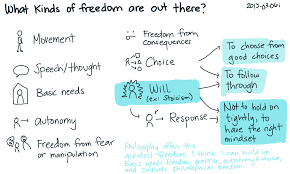 What kinds of freedom are out there?
2013-03-06
Movement
Speech/thought
Basic needs
autonomy
Freedom from fear
or manipulation
Freedom from
consequences
Choice
Will
(ex: Stoicism)
Response
To choose from
good choices
To follow
through
Not to hold on
tightly, to
have the right
mindset
Philosophy offers the
greatest freedom, I think. I can build up
basic needs freedom, practise autonomy & choice,
and cultivate philosophical freedom.